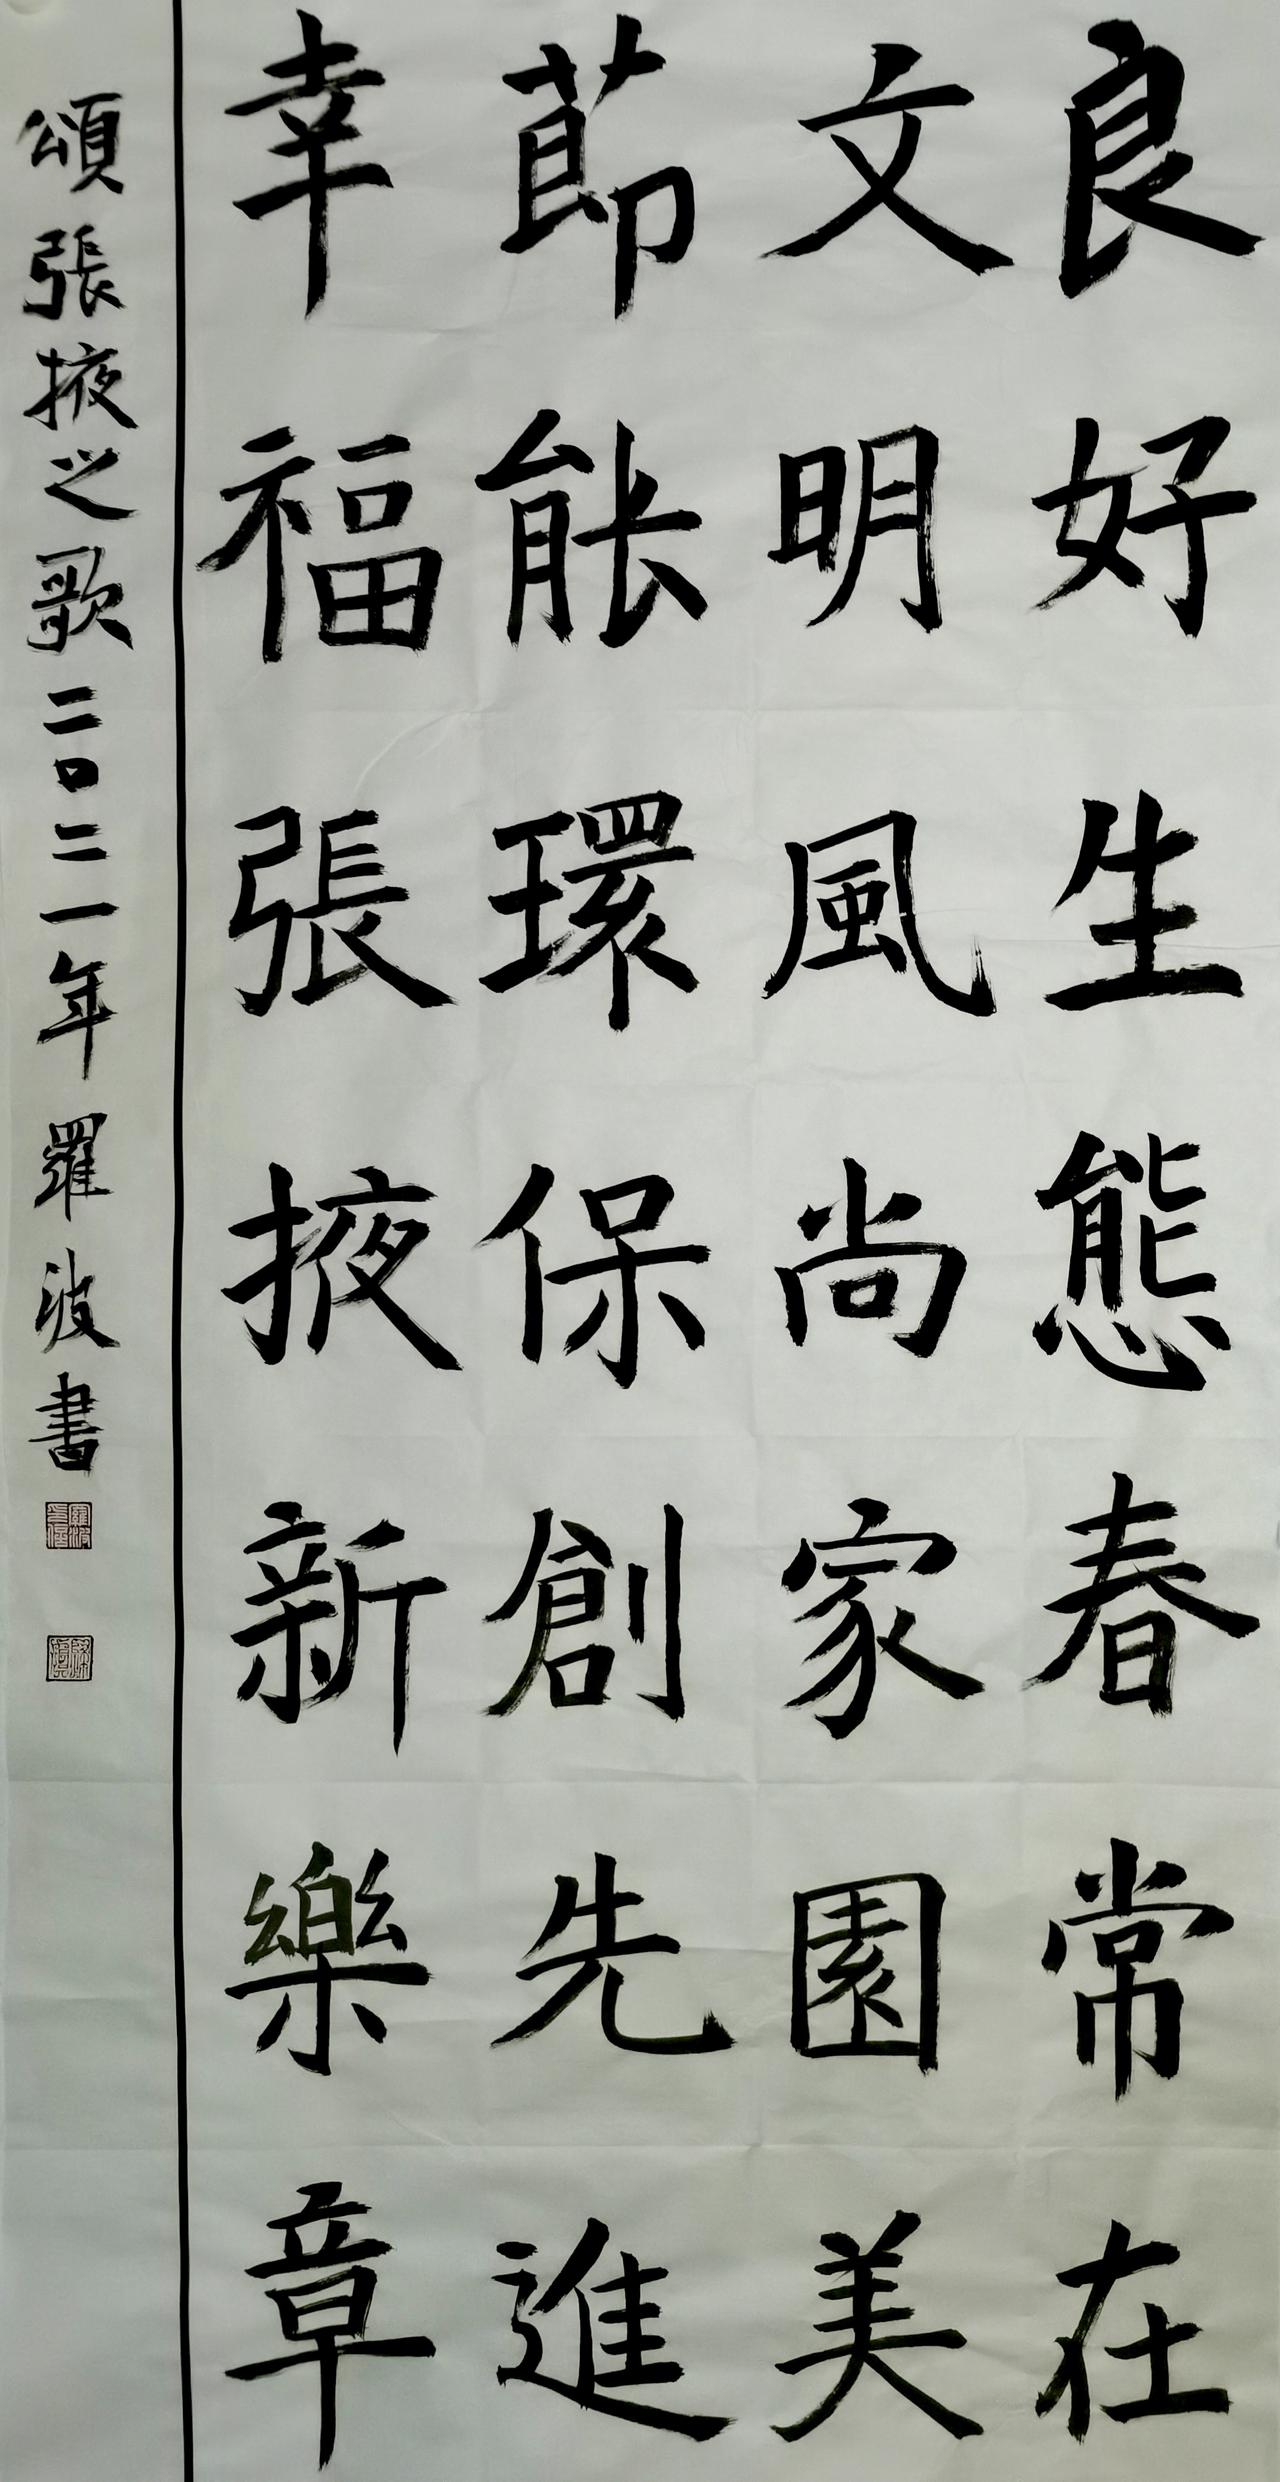 良好生態春常在
文明風尚家園美
節能環保創先進
幸福張掖新樂章
頌張掖之歌二〇二一年羅波書